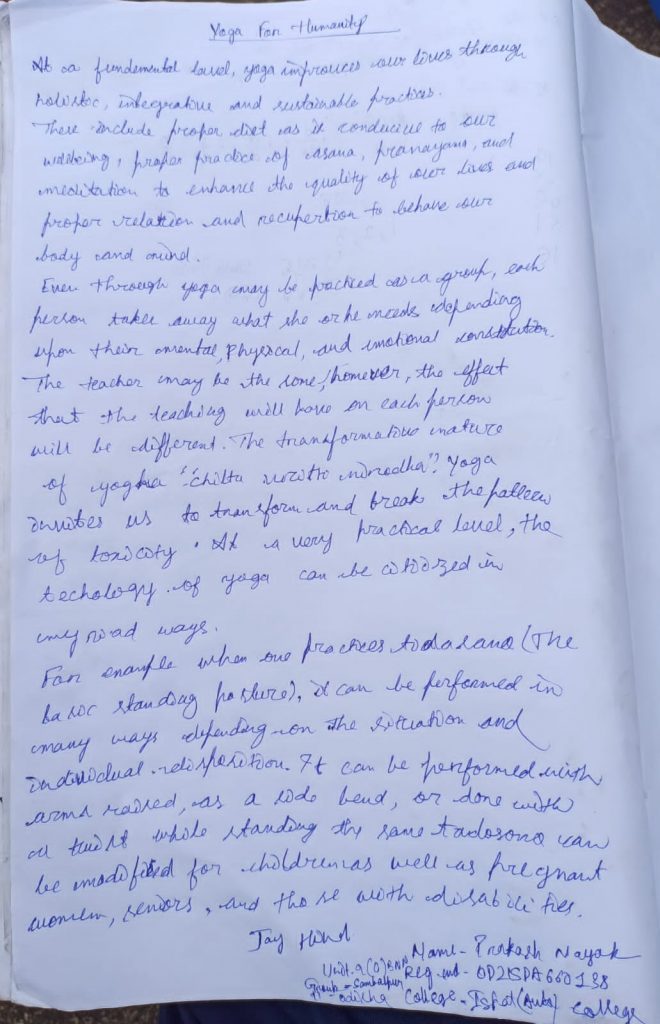 Yoga For Humanity
At a fundemental level, yoga improves our lives through
holistoc, integrative and sustainable practices.
There include proper diet as is conducive to our
wellbeing, proper practice of asana, pranayama, and
meditation to enhance the quality of our lives and
proper relation and recupertion to behave our
body and mind.
Even through yoga may be practiced as a group, each
person takes away what she or he needs depending
upon their mental, physical, and emotional constitution.
The teacher may be the same, however, the effect
that the teaching will have on each person
will be different. The transformative nature
of yogha "chitta vritti nirodha". Yoga
invites us to transform and break the pattern
of toxicity. At a very practical level, the
techology of yoga can be utilized in
myriad ways.
For example when one practices tadasana (The
basic standing posture), it can be performed in
many ways depending on the situation and
individual disposition. It can be performed with
arms raised, as a side bend, or done with
a twist while standing the same tadosono can
be modified for children as well as pregnant
women, seniors, and those with disabilities.
Jay Hind
Name - Prakash Nayak
Unit - 9(O) BNN Reg. no - OD21SDA660138
Group - Sambalpur
odisha College - Ispat (Auto) College